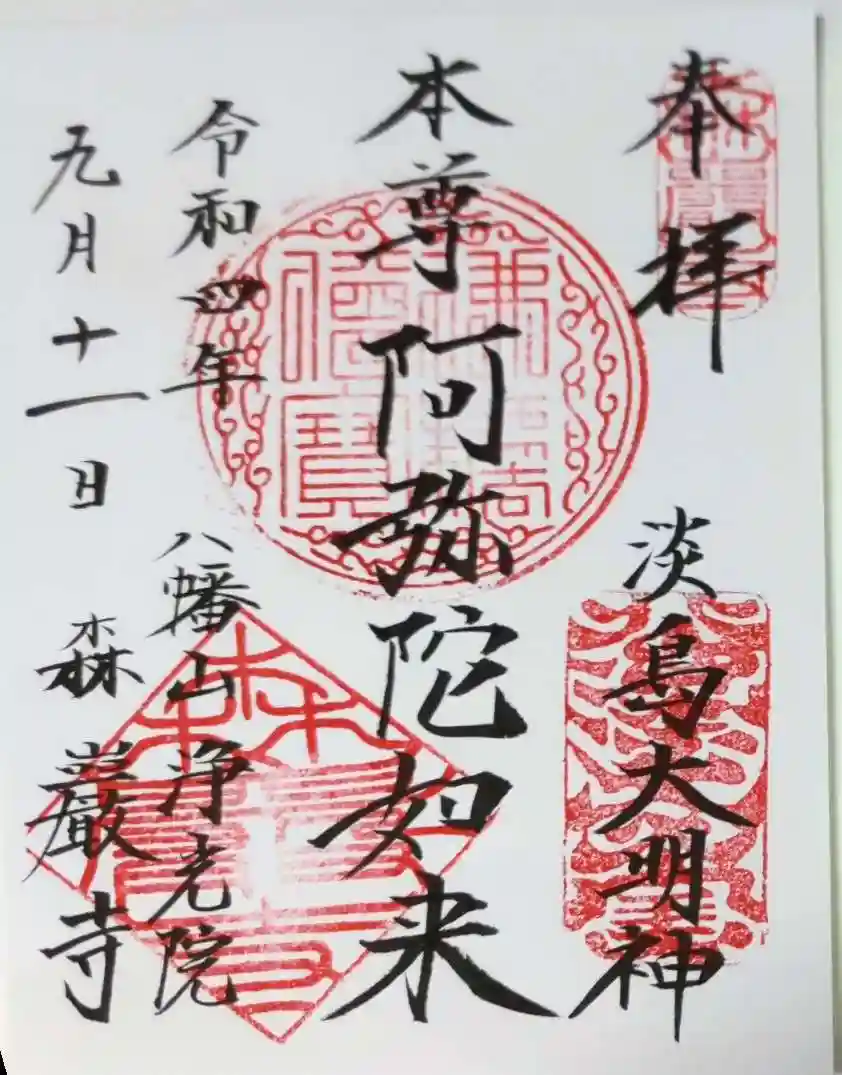 奉拝
淡島大明神
本尊阿弥陀如来
令和四年
九月十一日
八幡山浄光院
森巖寺